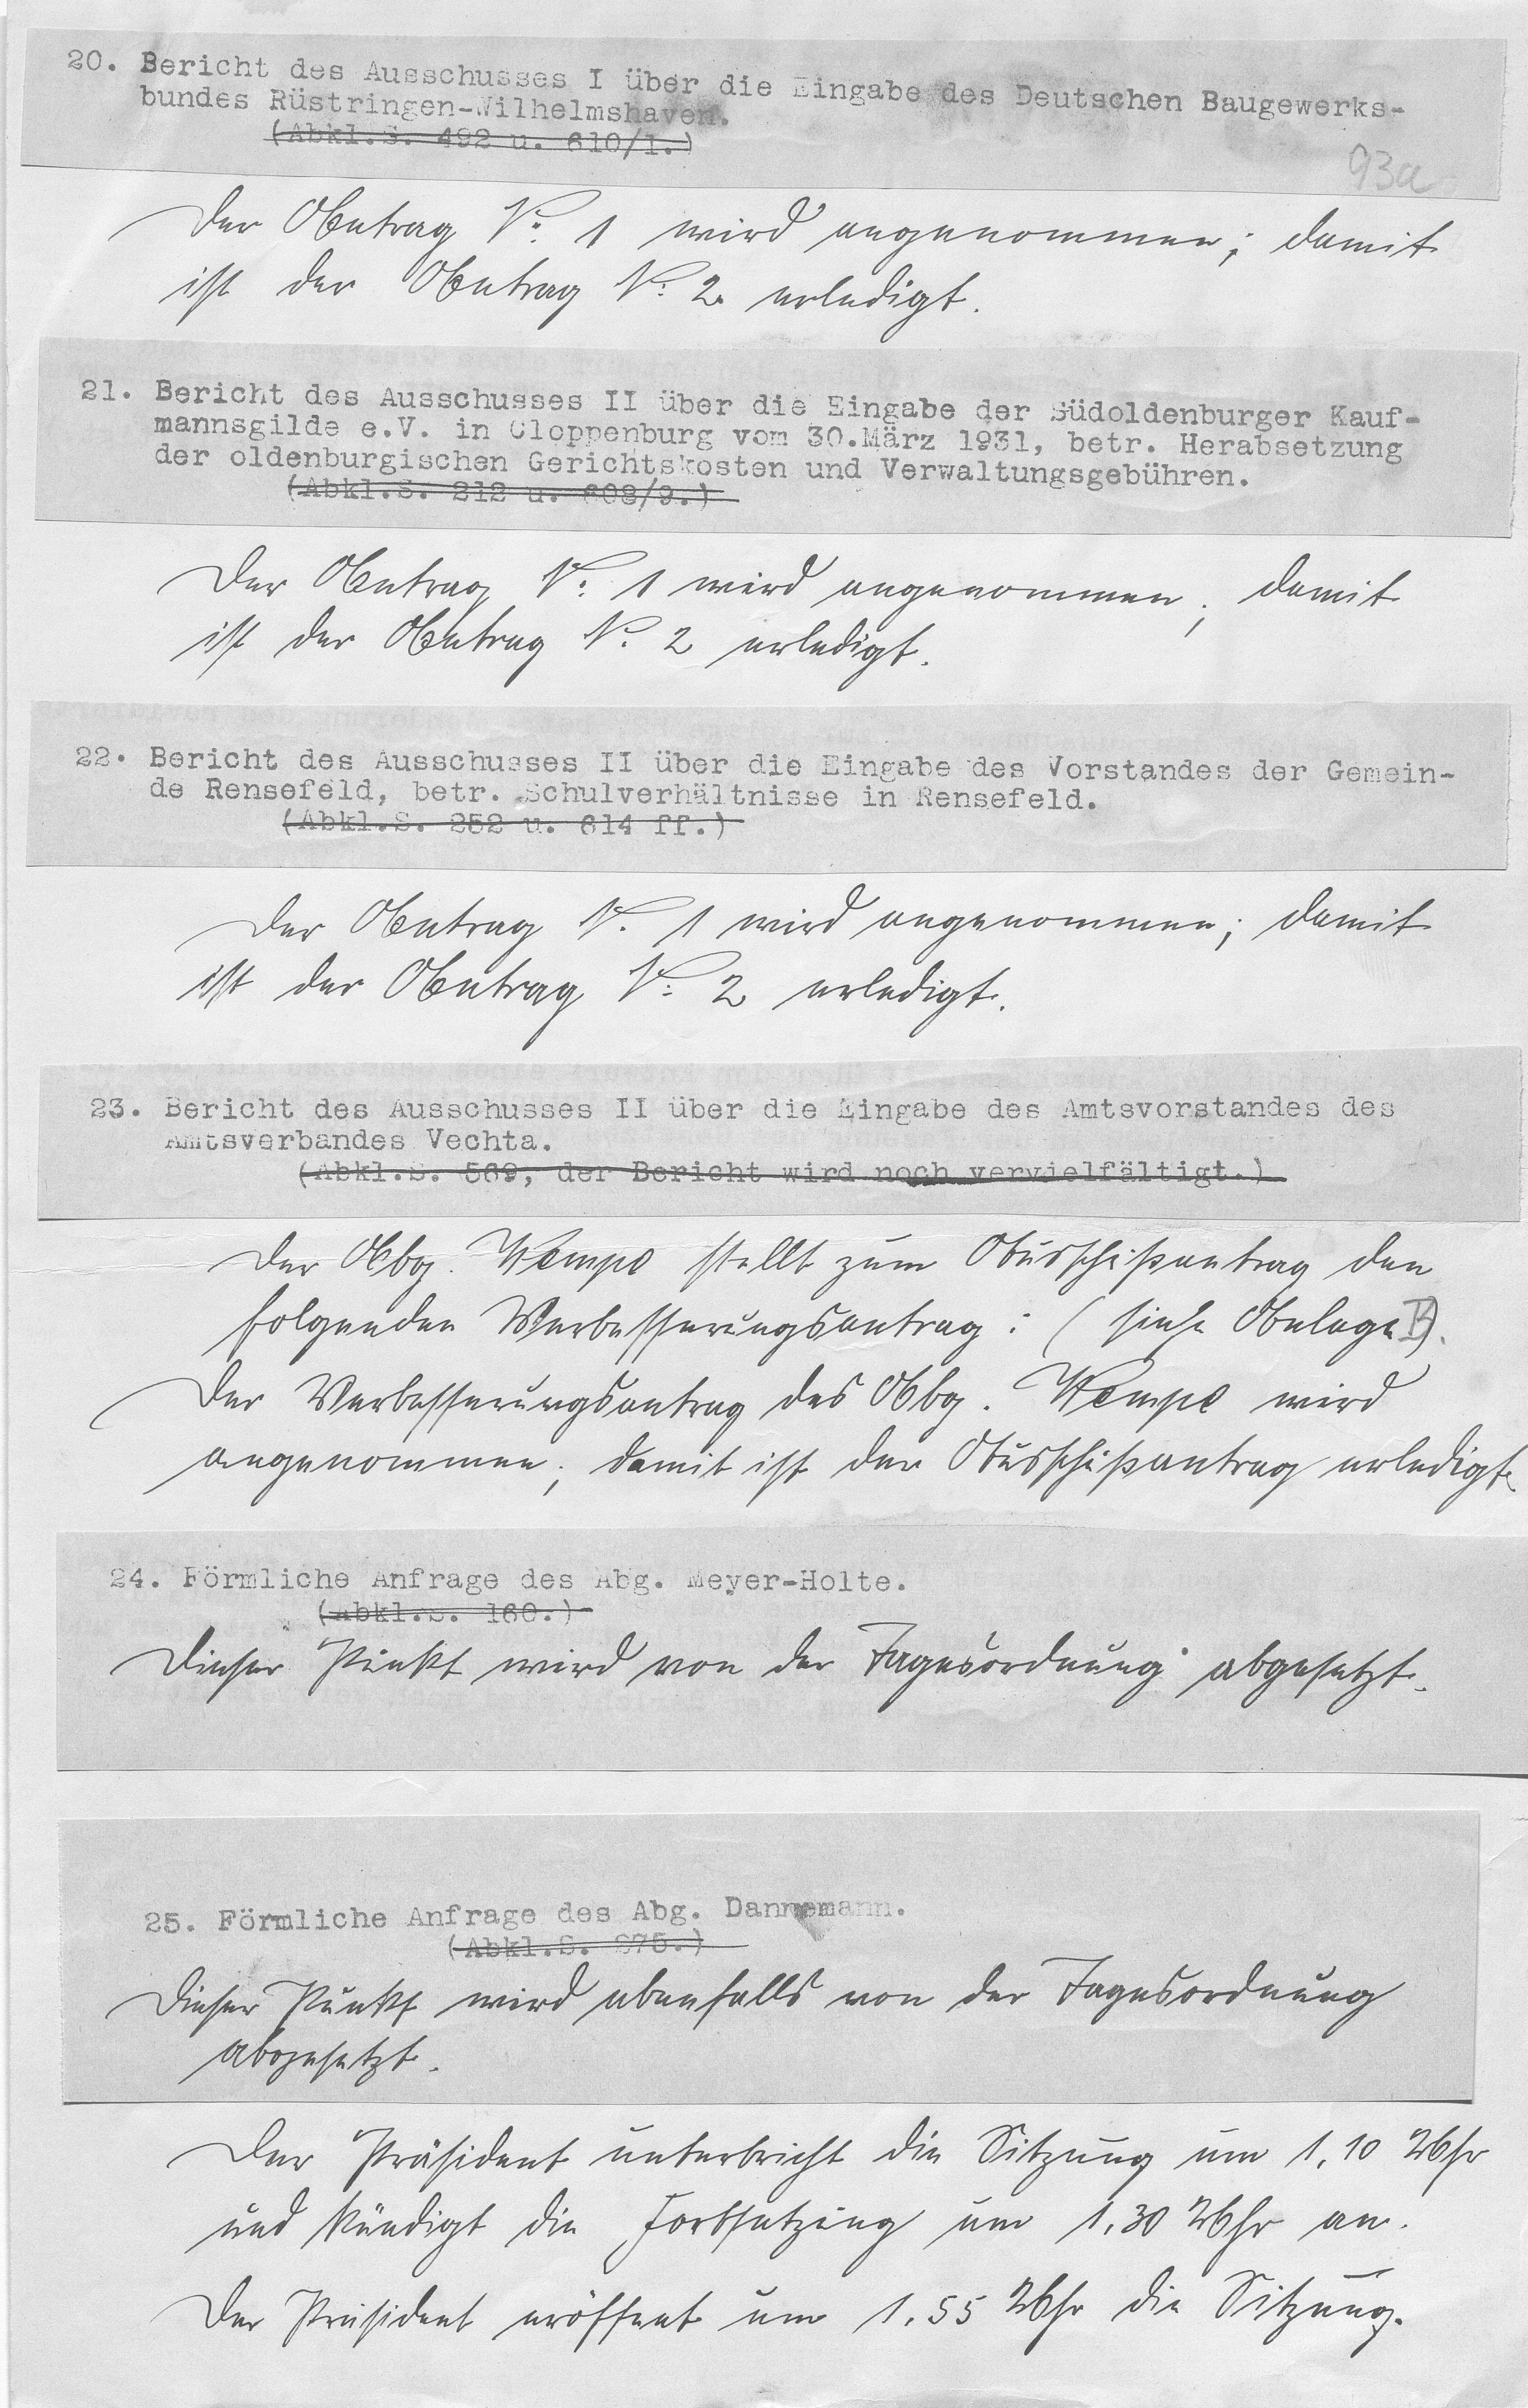 20. Bericht des Ausschusses I über die Eingabe des Deutschen Baugewerks-
bundes Rüstringen-Wilhelmshaven.
(Abkl.S. 492 u. 610/1.)
93a
Der Antrag Nr. 1 wird angenommen; damit
ist der Antrag Nr. 2 erledigt.
21. Bericht des Ausschusses II über die Eingabe der Südoldenburger Kauf-
mannsgilde e.V. in Cloppenburg vom 30.März 1931, betr. Herabsetzung
der oldenburgischen Gerichtskosten und Verwaltungsgebühren.
(Abkl.S. 212 u. 608/9.)
Der Antrag Nr. 1 wird angenommen; damit
ist der Antrag Nr. 2 erledigt.
22. Bericht des Ausschusses II über die Eingabe des Vorstandes der Gemein-
de Rensefeld, betr. Schulverhältnisse in Rensefeld.
(Abkl.S. 252 u. 614 ff.)
Der Antrag Nr. 1 wird angenommen; damit
ist der Antrag Nr. 2 erledigt.
23. Bericht des Ausschusses II über die Eingabe des Amtsvorstandes des
Amtsverbandes Vechta.
(Abkl.S. 569, der Bericht wird noch vervielfältigt.)
Der Abg. Wempe stellt zum Ausschußantrag den
folgenden Verbesserungsantrag: (siehe Anlage).
Der Verbesserungsantrag des Abg. Wempe wird
angenommen; damit ist der Ausschußantrag erledigt.
24. Förmliche Anfrage des Abg. Meyer-Holte.
(Abkl.S. 160.)
Dieser Punkt wird von der Tagesordnung abgesetzt.
25. Förmliche Anfrage des Abg. Dannemann.
(Abkl.S. 275.)
Dieser Punkt wird ebenfalls von der Tagesordnung
abgesetzt.
Der Präsident unterbricht die Sitzung um 1,10 Uhr
und kündigt die Fortsetzung um 1,30 Uhr an.
Der Präsident eröffnet um 1,55 Uhr die Sitzung.